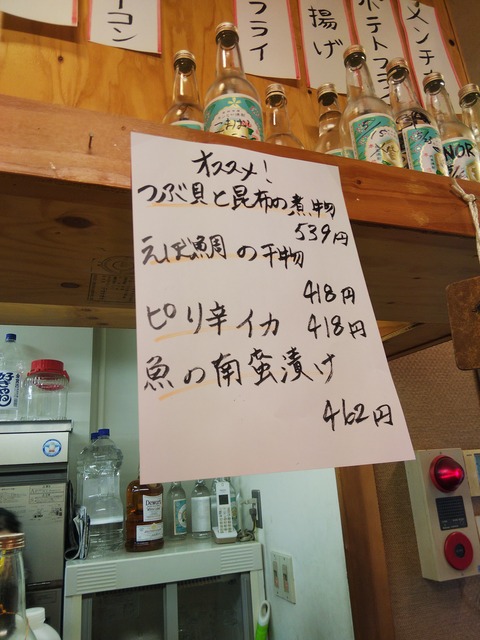 ーコン
フライ
揚げ
ポテトフライ
メンチカ
NOR
オススメ!
つぶ貝と昆布の煮物
539円
えぼ鯛の干物
418円
ピリ辛イカ 418円
魚の南蛮漬け
462円
Dewar's